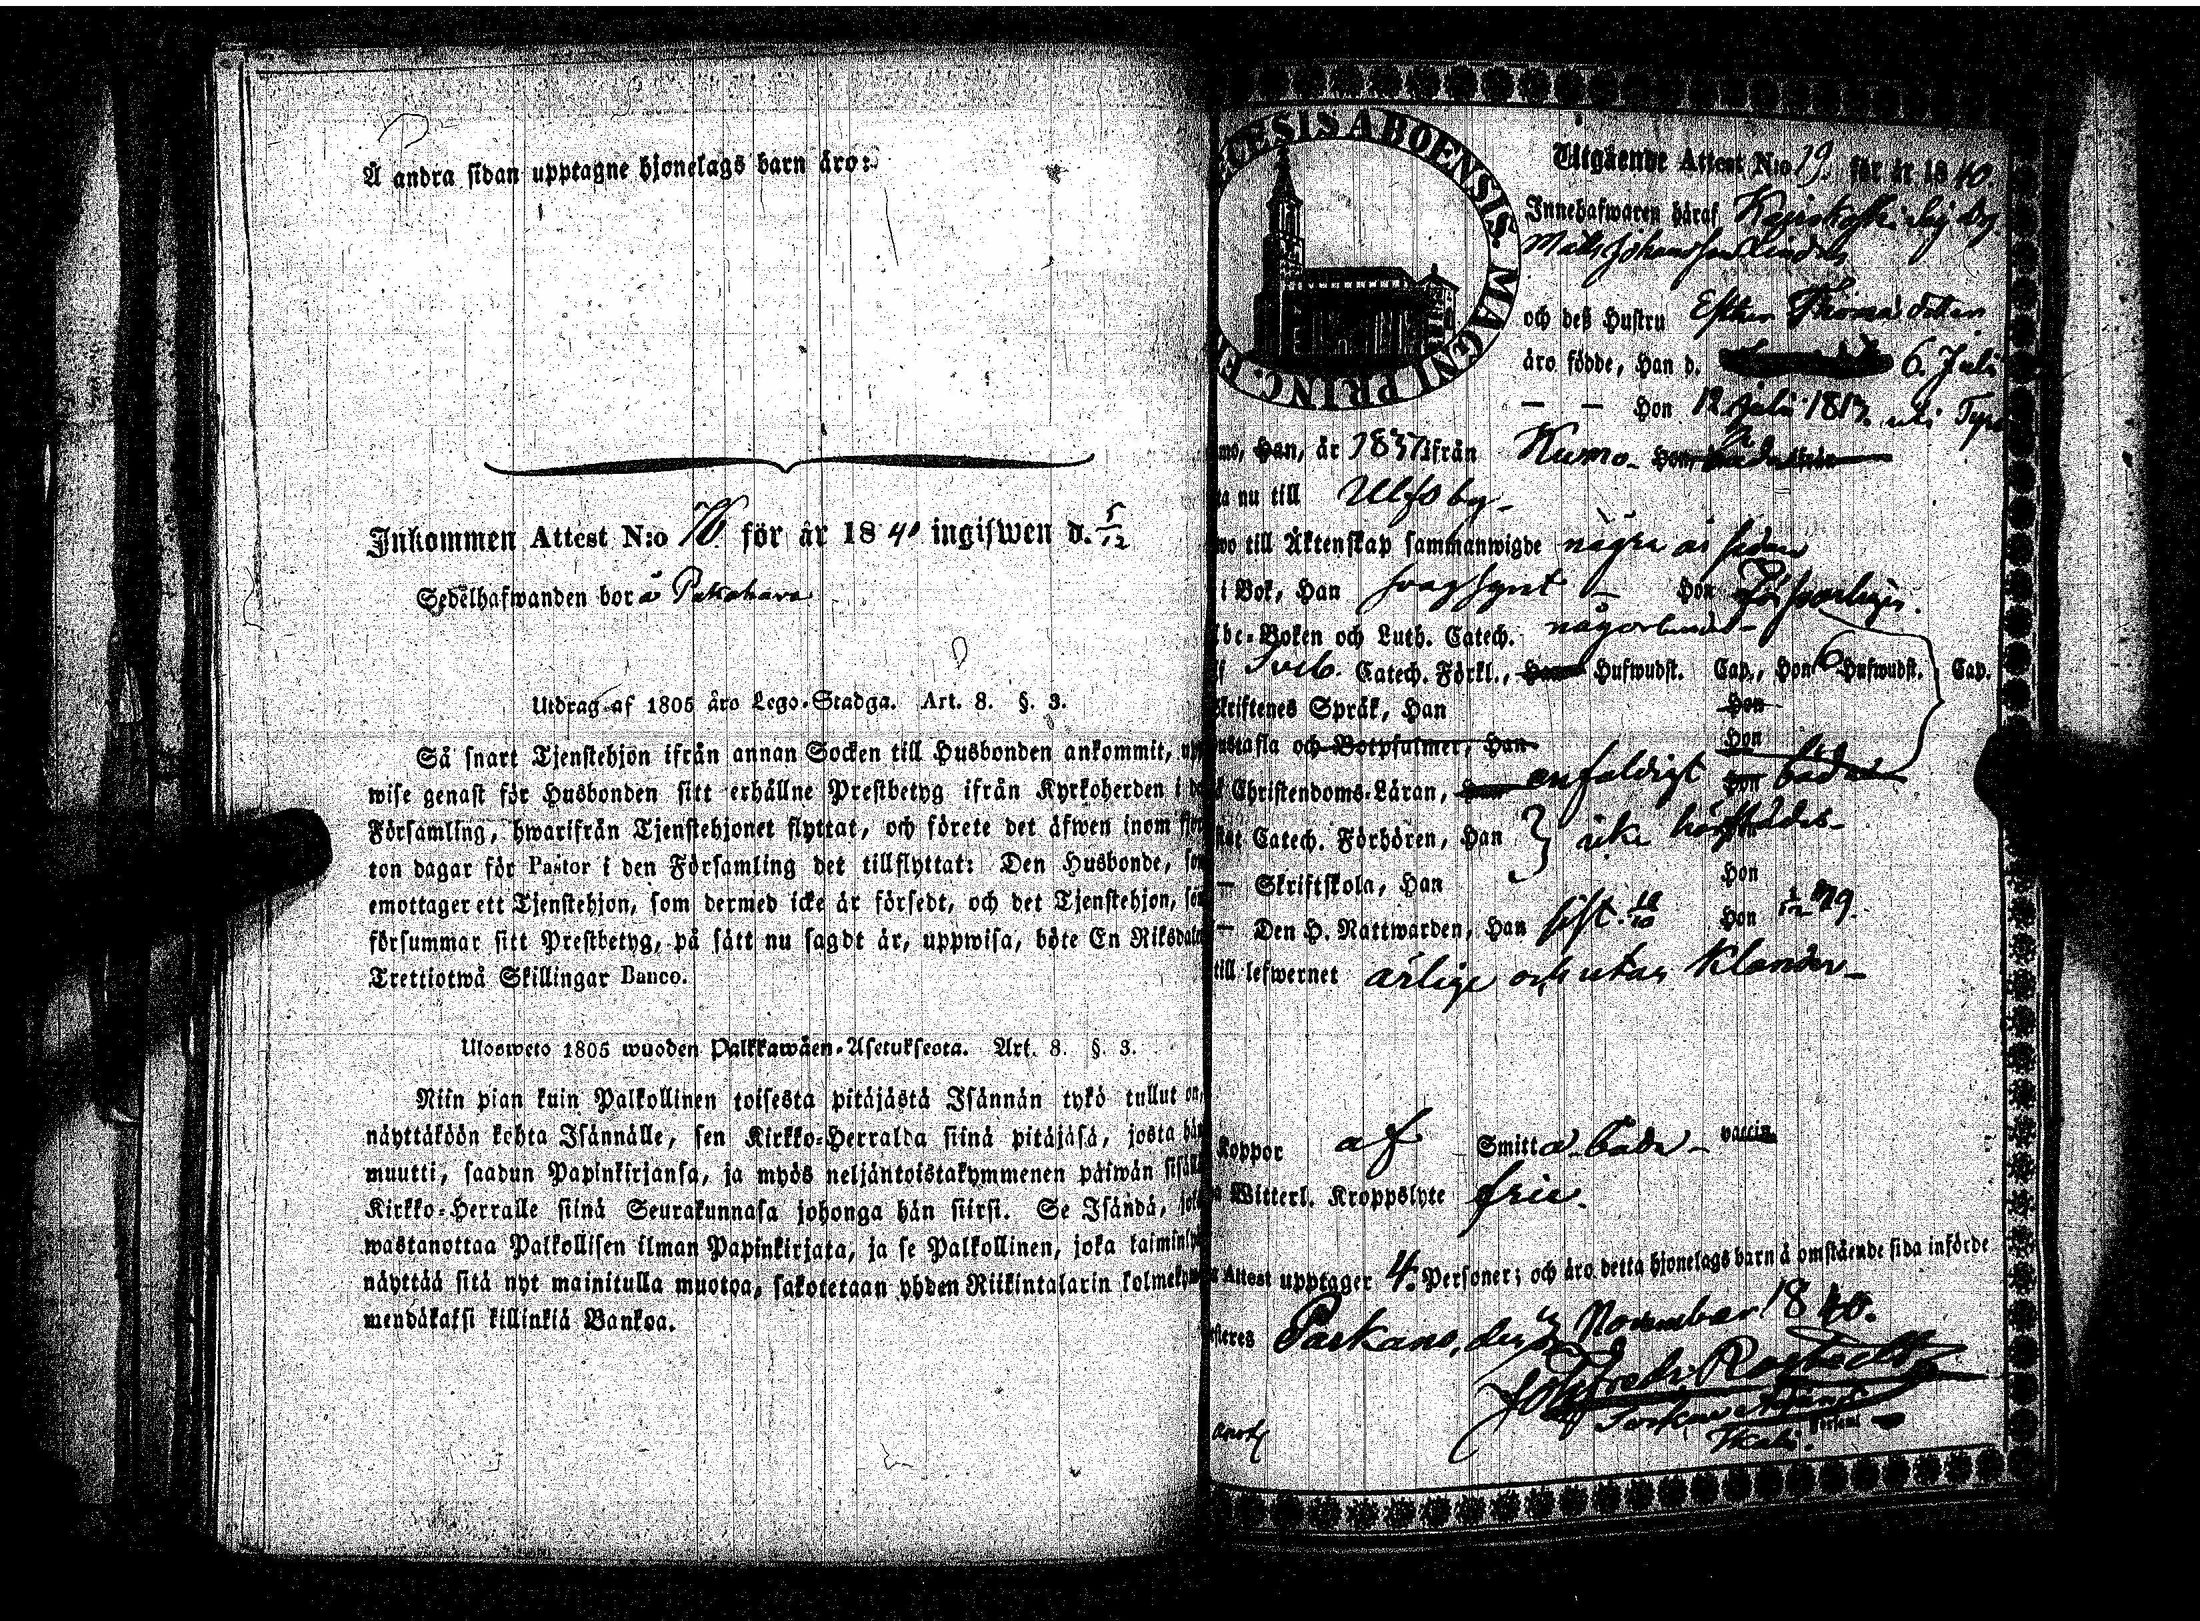 Å andra sidan upptagne hjonelags barn äro:
Inkommen Attest N:o 76 för år 1840 ingifwen d. 5/12
Sedelhafwanden bor å
Utdrag af 1805 åro Lego-Stadga. Art. 8. §. 3.
Så snart Tjenstehjon ifrån annan Socken till Husbonden ankommit, upp
wise genast för Husbonden sitt erhållne Prestbetyg ifrån Kyrkoherden i de
Församling, hwarifrån Tjenstehjonet flyttat, och förete det äfwen inom fjor
ton dagar för Pastor i den Församling det tillflyttat: Den Husbonde, som
emottager ett Tjenstehjon, som dermed icke är försedt, och det Tjenstehjon, som
försummar sitt Prestbetyg, på sätt nu sagdt är, uppwisa, böte En Riksdaler
Trettiotwå Skillingar Banco.
Ulosweto 1805 wuoden Palkkawäen-Asetuksesta. Art. 8. §. 3.
Niin pian kuin Palkollinen toisesta pitäjästä Isännän tykö tullut on,
näyttäköön kohta Isännälle, sen Kirkko-Herralda siinä pitäjäsä, josta hän
muutti, saadun Papinkirjansa, ja myös neljäntoistakymmenen päiwän sisällä
Kirkko-Herralle siinä Seurakunnasa johonga hän siirsi. Se Isändä, joka
wastanottaa Palkollisen ilman Papinkirjata, ja se Palkollinen, joka laiminlyö
näyttää sitä nyt mainitulla muotoa, sakotetaan yhden Riikintalarin kolmekym
mendäkaksi killinkiä Bankoa.
ECESIS ABOENSIS. MAGNI PRINC. F
Utgående Attest N:o 19. för år 1840.
Innehafwaren häraf
Matts Johansson
och deß Hustru Esther Thomasdotter
äro födde, Han d. 6. Juli
— — Hon 12 Juli 1813. uti
mo, Han, år 1837 ifrån Kumo. Hon,
a nu till Ulfsby.
wo till Äktenskap sammanwigde några år sedan
i Bok, Han svagsynt — Hon Försvarligen.
Abc-Boken och Luth. Catech. någorlunda
f Sveb. Catech. Förkl., Han Hufwudst. Cap., Hon 6 Hufwudst. Cap.
kriftenes Språk, Han Hon
ustafla och Botpsalmer, Han Hon
Christendoms-Läran, Han enfaldigt Hon båda
stat Catech. Förhören, Han icke härstädes
— Skriftskola, Han Hon
— Den H. Nattwarden, Han sist. 18/10 Hon
till lefwernet ärlige och utan klander
Koppor af Smitta båda vaccin.
a Witterl. Kroppslyte frie.
Attest upptager 4. Personer; och äro detta hjonelags barn å omstående sida införde
steres Parkano, den November 1840.